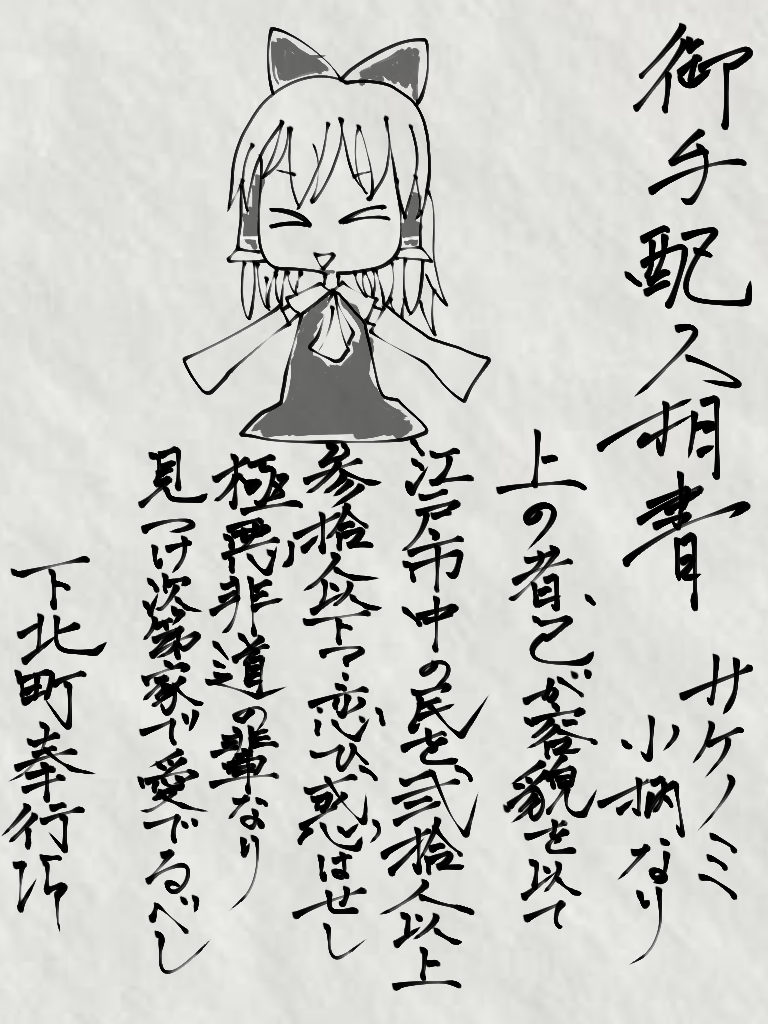 御手配人相書
サケノミ
小柄なり
上の者、己が容貌を以て
江戸市中の民を弐拾人以上
参拾人以下、恋ひ惑はせし
極悪非道の輩なり
見つけ次第家で愛でるべし
下北町奉行所